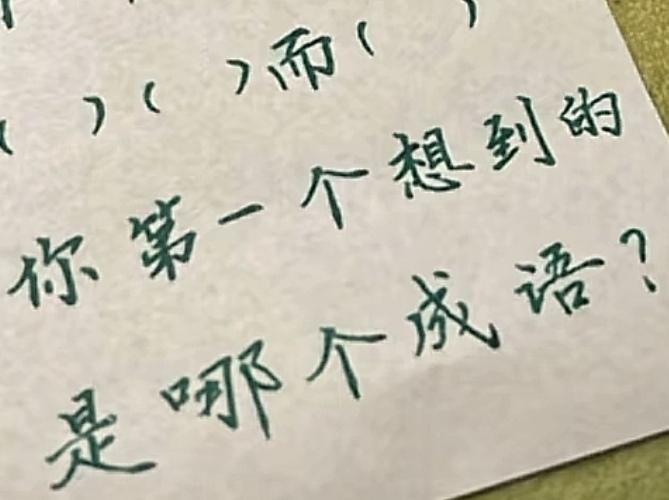 ( )( )而( )
你第一个想到的
是哪个成语?